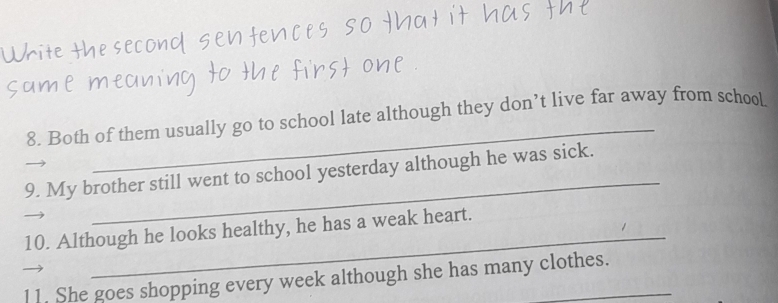 Write the second sentences so that it has the
same meaning to the first one.
8. Both of them usually go to school late although they don't live far away from school.
→
9. My brother still went to school yesterday although he was sick.
→
10. Although he looks healthy, he has a weak heart.
→
11. She goes shopping every week although she has many clothes.